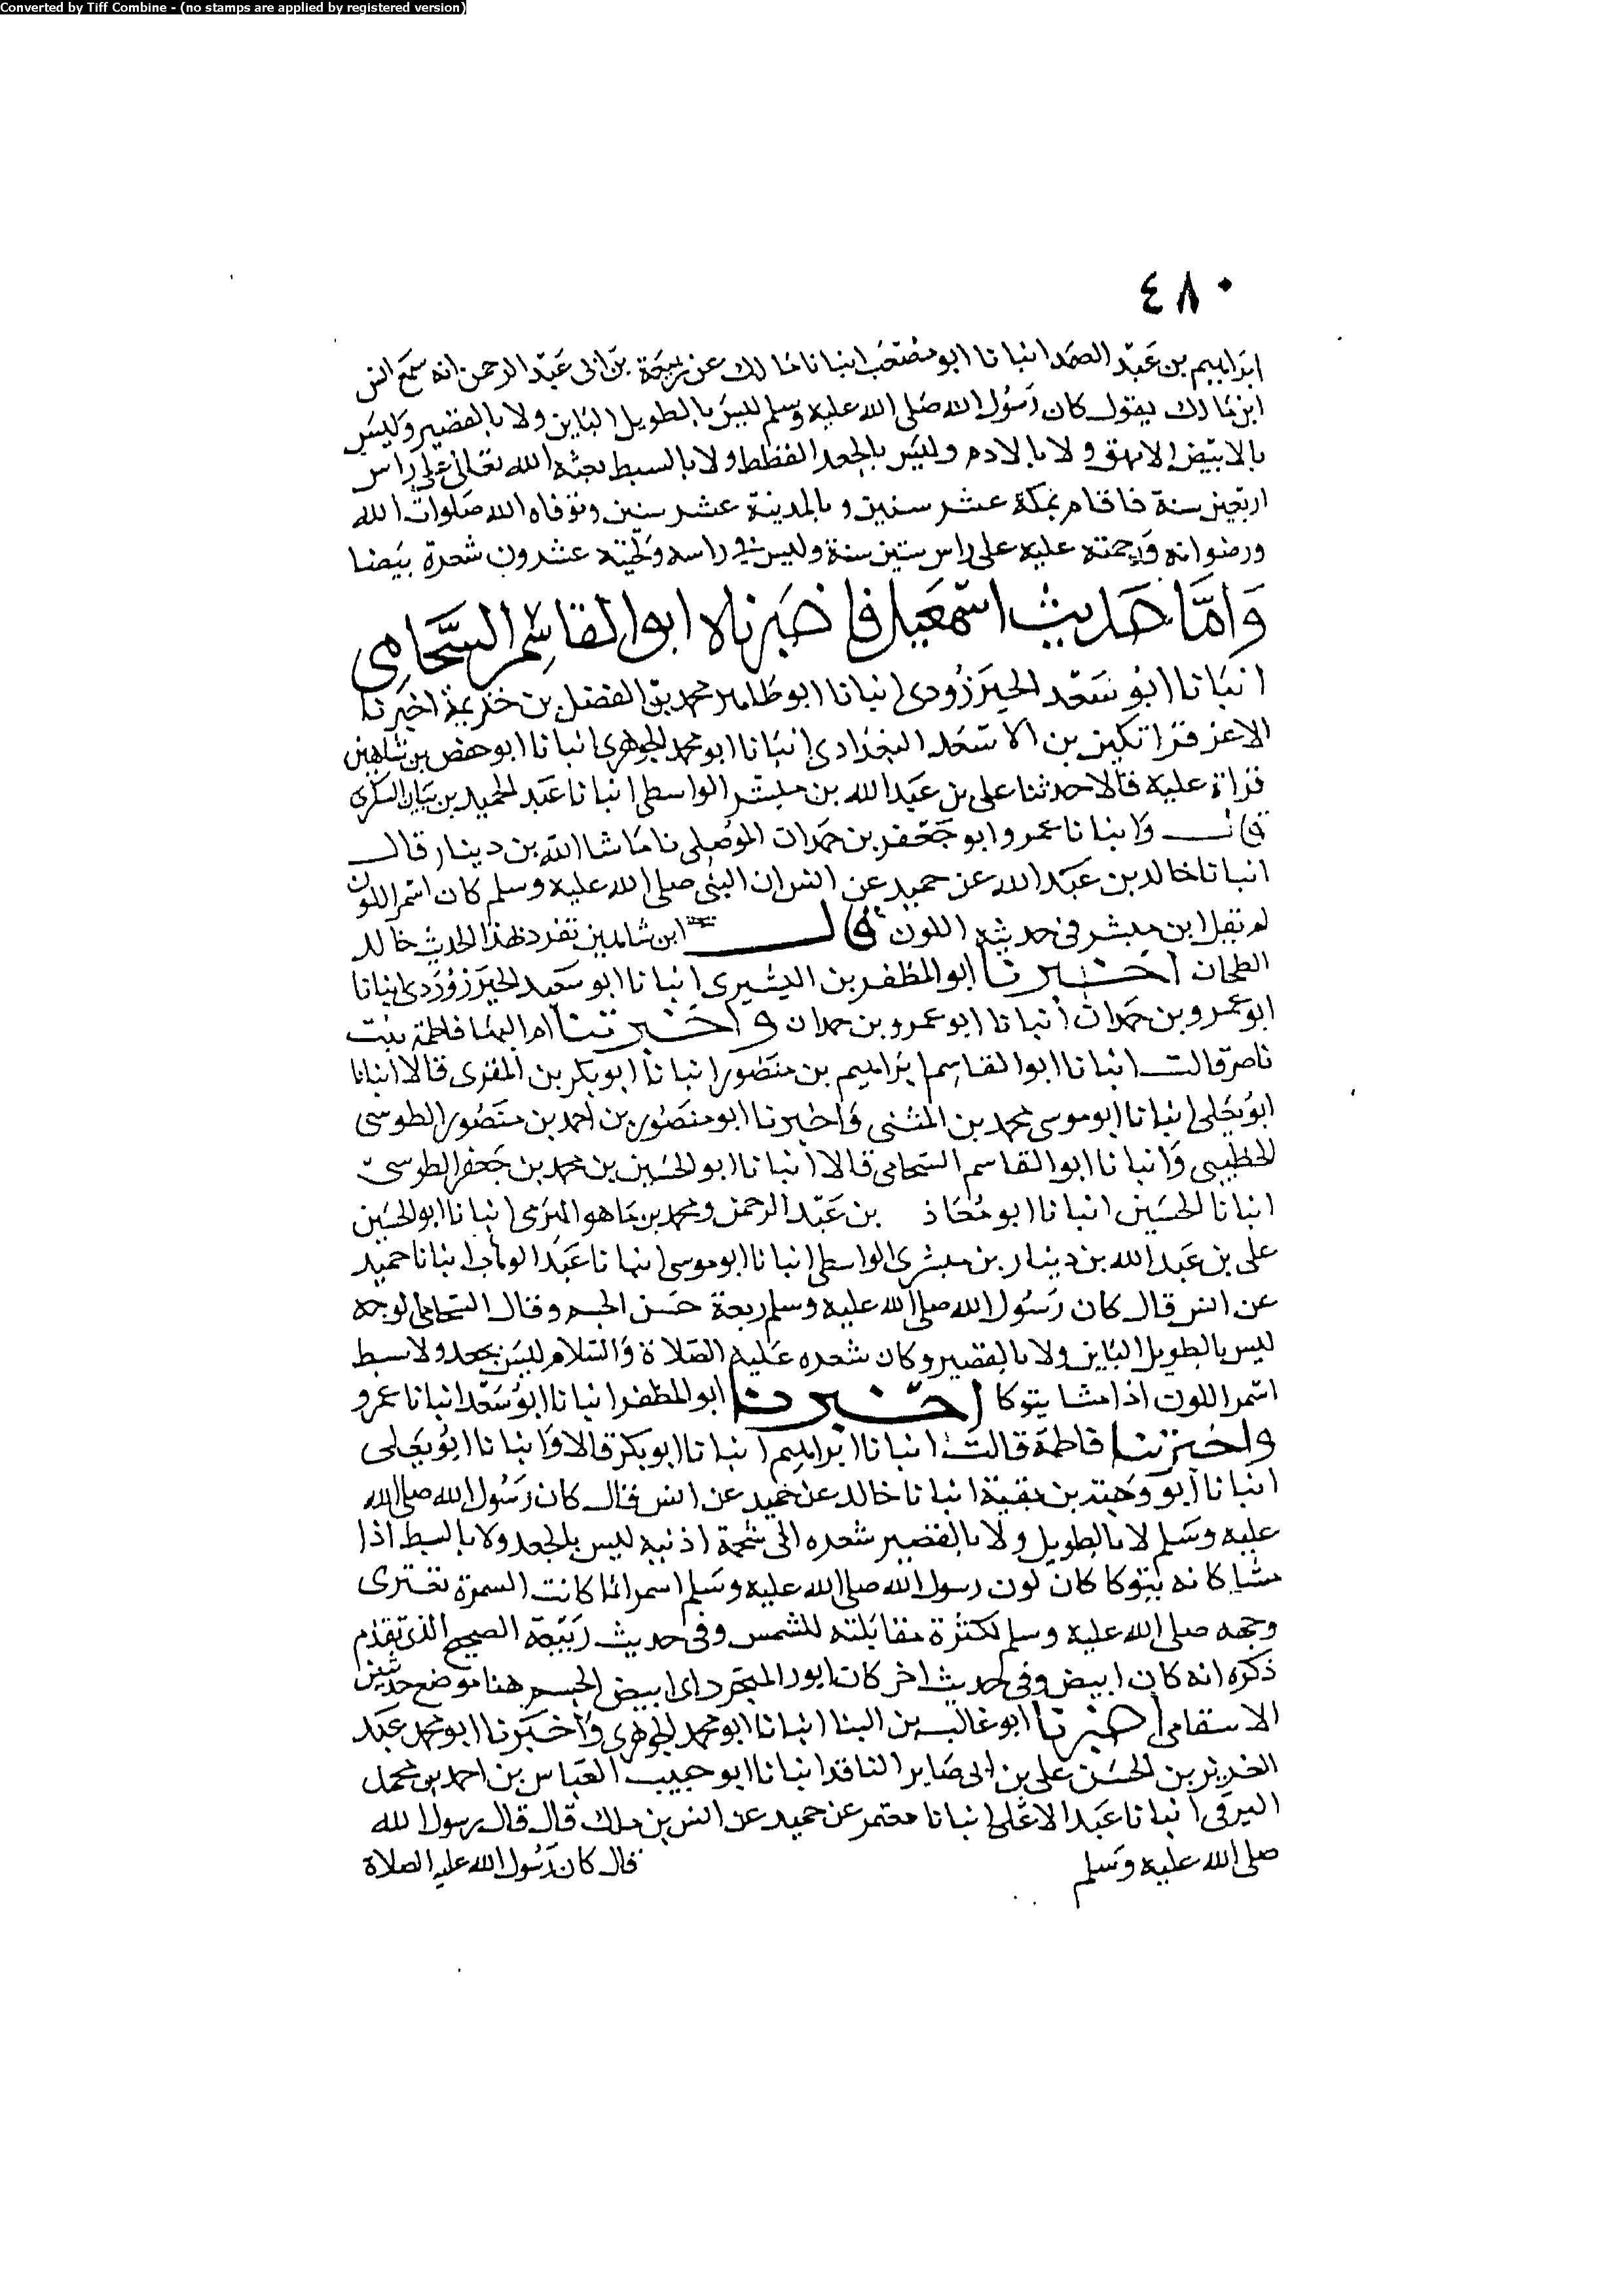 Converted by Tiff Combine - (no stamps are applied by registered version)
٤٨٠
ابراهيم بن عبد الصمد انبانا ابو مصعب انبانا مالك عن ربيعة بن ابى عبد الرحمن انه سمع انس
ابن مالك يقول كان رسول الله صلى الله عليه وسلم ليس بالطويل الباين ولا بالقصير وليس
بالابيض الامهق ولا بالادم وليس بالجعد القطط ولا بالسبط بعثه الله تعالى على راس
اربعين سنة فاقام بمكة عشر سنين وبالمدينة عشر سنين وتوفاه الله صلوات الله
ورضوانه ورحمته عليه على راس ستين سنة وليس في راسه ولحيته عشرون شعرة بيضا
وَامَّا حديث اسمعيل فاخبرناه ابو القاسم السحامى
انبانا ابو سعد الخيرزودى انبانا ابو طاهر محمد بن الفضل بن خزيمة اخبرنا
الاعز قراتكين بن الاسعد البغدادى انبانا ابو محمد الجوهرى انبانا ابو حفص بن شاهين
قراة عليه قالا حدثنا على بن عبد الله بن مبشر الواسطى انبانا عبد الحميد بن بيان السكرى
قال وانبانا عمرو ابو جعفر بن حمدان الموصلى نا ماشا الله بن دينار قال
انبانا خالد بن عبد الله عن حميد عن انس ان النبى صلى الله عليه وسلم كان اسمر اللون
لم يقل ابن مبشر فى حديثه اللون قال ابن شاهين تفرد بهذا الحديث خالد
الطحان اخبرنا ابو المظفر بن القشيرى انبانا ابو سعد الخيرزوردى انبانا
ابو عمرو بن حمدان انبانا ابو عمرو بن حمدان واخبرتنا ام البها فاطمة بنت
ناصر قالت انبانا ابو القاسم ابراهيم بن منصور انبانا ابو بكر بن المقرى قالا انبانا
ابو يعلى انبانا ابو موسى محمد بن المثنى واخبرنا ابو منصور بن احمد بن منصور الطوسى
الخطيبى وانبانا ابو القاسم السحامى قالا انبانا ابو الحسين بن محمد بن جعفر الطوسى
انبانا الحسين انبانا ابو معاذ بن عبد الرحمن ومحمد بن ماهو انبانا ابو الحسين
على بن عبد الله بن دينار بن مبشرى الواسطى انبانا ابو موسى انبانا عبد الوهاب انبانا حميد
عن انس قال كان رسول الله صلى الله عليه وسلم ربعة حسن الجسم وقال السحامى الوجه
ليس بالطويل الباين ولا بالقصير وكان شعره عليه الصلاة والسلام ليس بجعد ولا سبط
اسمر اللون اذا مشا يتوكا اخبرنا ابو المظفر انبانا ابو سعد انبانا عمرو
واخبرتنا فاطمة قالت انبانا ابراهيم انبانا ابو بكر قالا وانبانا ابو يعلى
انبانا ابو وهبه بن بقية انبانا خالد عن حميد عن انس قال كان رسول الله صلى الله
عليه وسلم لا بالطويل ولا بالقصير شعره الى شحمة اذنيه ليس بالجعد ولا بالسبط اذا
مشا كانه يتوكا كان لون رسول الله صلى الله عليه وسلم اسمر انما كانت السمرة تعترى
وجهه صلى الله عليه وسلم لكثرة مقابلته للشمس وفى حديث ربيعة الصحيح الذى تقدم
ذكره انه كان ابيض وفى حديث اخر كان انور المتجرد اى ابيض الجسم هنا موضع حديثين
الاسقامى اخبرنا ابو غالب بن البنا انبانا ابو محمد الجوهرى واخبرنا ابو محمد عبد
العزيز بن الحسن على بن ابى صابر الناقد انبانا ابو حبيب العباس بن احمد بن محمد
البرقى انبانا عبد الاعلى انبانا معتمر عن حميد عن انس بن ملك قال قال رسول الله
صلى الله عليه وسلم قال كان رسول الله عليه الصلاة